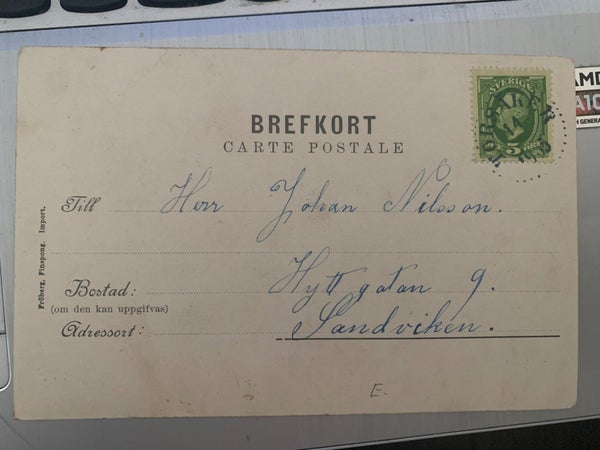 BREFKORT
CARTE POSTALE
SVERIGE
5
TORSÅKER
14
Till Herr Johan Nilsson.
Bostad: Hyttgatan 9.
(om den kan uppgifvas)
Adressort: Sandviken.
Fröberg, Finspong. Import.
E.
AMD